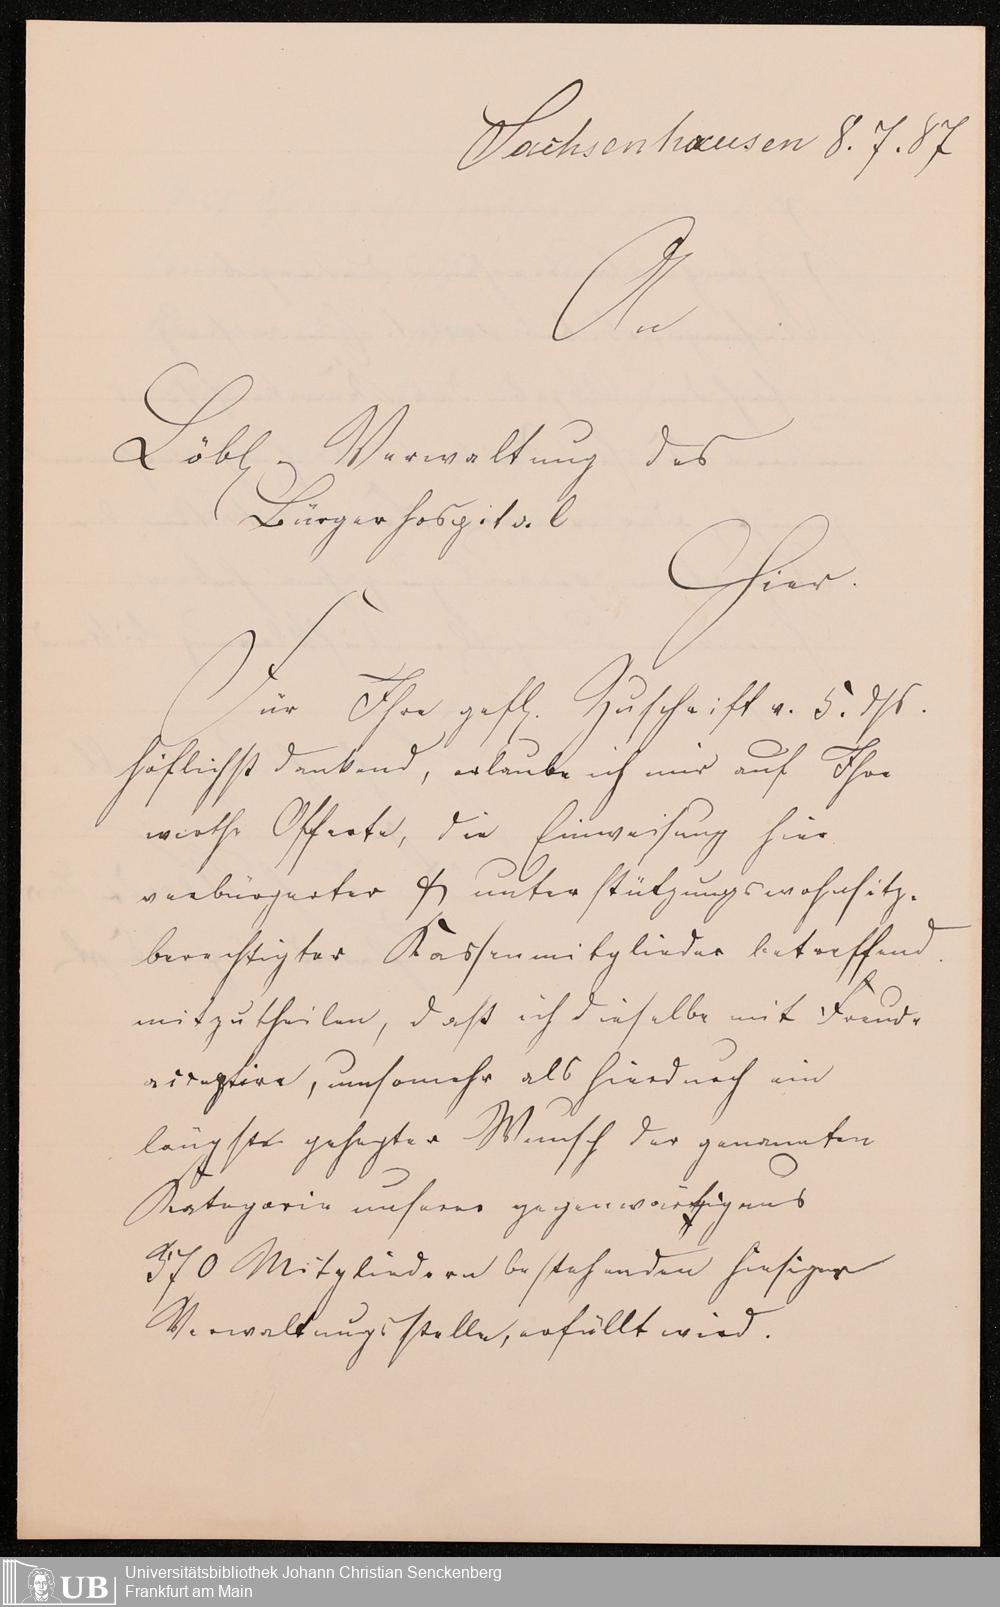 Sachsenhausen 8.7.87
An
Löbl. Verwaltung des
Bürgerhospital
Hier.
Für Ihre gefl. Zuschrift v. 5. dſs.
höflichst dankend, erlaube ich mir auf Ihre
werthe Offerte, die Einweisung hier
verbürgerter & unterstützungswohnsitz-
berechtigter Kassenmitglieder betreffend
mitzutheilen, daß ich dieselbe mit Freude
acceptire, umsomehr als hierdurch ein
längst gehegter Wunsch der genannten
Kategorie unserer gegenwärtig aus
570 Mitgliedern bestehenden hiesigen
Verwaltungsstelle, erfüllt wird.
UB
Universitätsbibliothek Johann Christian Senckenberg
Frankfurt am Main